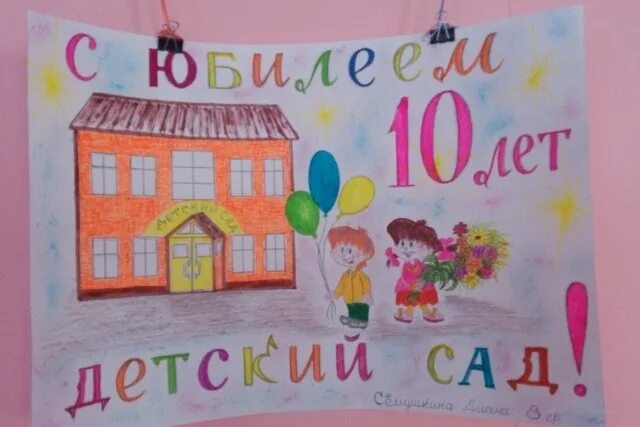 С ЮБИЛЕЕМ
10 лет
ДЕТСКИЙ САД
ДЕТСКИЙ САД!
Диана 8 гр.